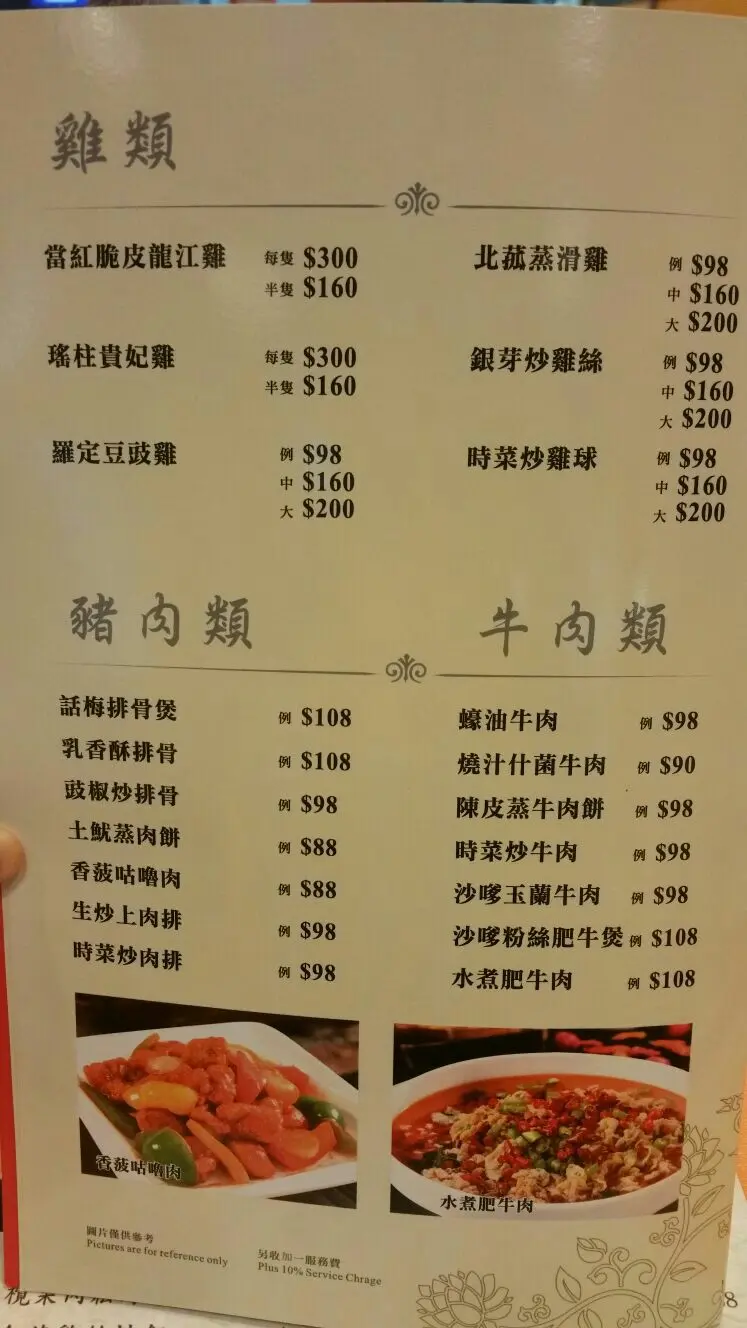 雞類
當紅脆皮龍江雞 每隻 $300
半隻 $160
瑤柱貴妃雞 每隻 $300
半隻 $160
羅定豆豉雞 例 $98
中 $160
大 $200
北菰蒸滑雞 例 $98
中 $160
大 $200
銀芽炒雞絲 例 $98
中 $160
大 $200
時菜炒雞球 例 $98
中 $160
大 $200
豬肉類
話梅排骨煲 例 $108
乳香酥排骨 例 $108
豉椒炒排骨 例 $98
土魷蒸肉餅 例 $88
香菠咕嚕肉 例 $88
生炒上肉排 例 $98
時菜炒肉排 例 $98
牛肉類
蠔油牛肉 例 $98
燒汁什菌牛肉 例 $90
陳皮蒸牛肉餅 例 $98
時菜炒牛肉 例 $98
沙嗲玉蘭牛肉 例 $98
沙嗲粉絲肥牛煲 例 $108
水煮肥牛肉 例 $108
香菠咕嚕肉
水煮肥牛肉
圖片僅供參考
Pictures are for reference only
另收加一服務費
Plus 10% Service Chrage